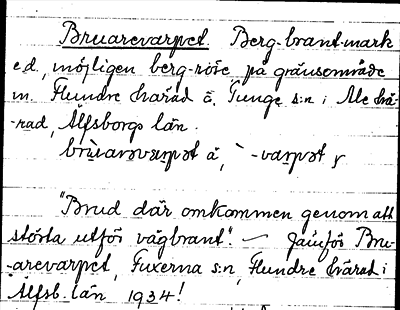 Bruarevarpet. Berg-brant-mark
e.d., möjligen berg-röse, på gränsområde
m. Flundre härad å, Tunge s:n i Ale hä-
-rad, Älfsborgs län.
"Brud där omkommen genom att
störta utför vägbrant". — Jämför Bru-
-arevarpet, Fuxerna s:n, Flundre härad i
Älfsb. län 1934!